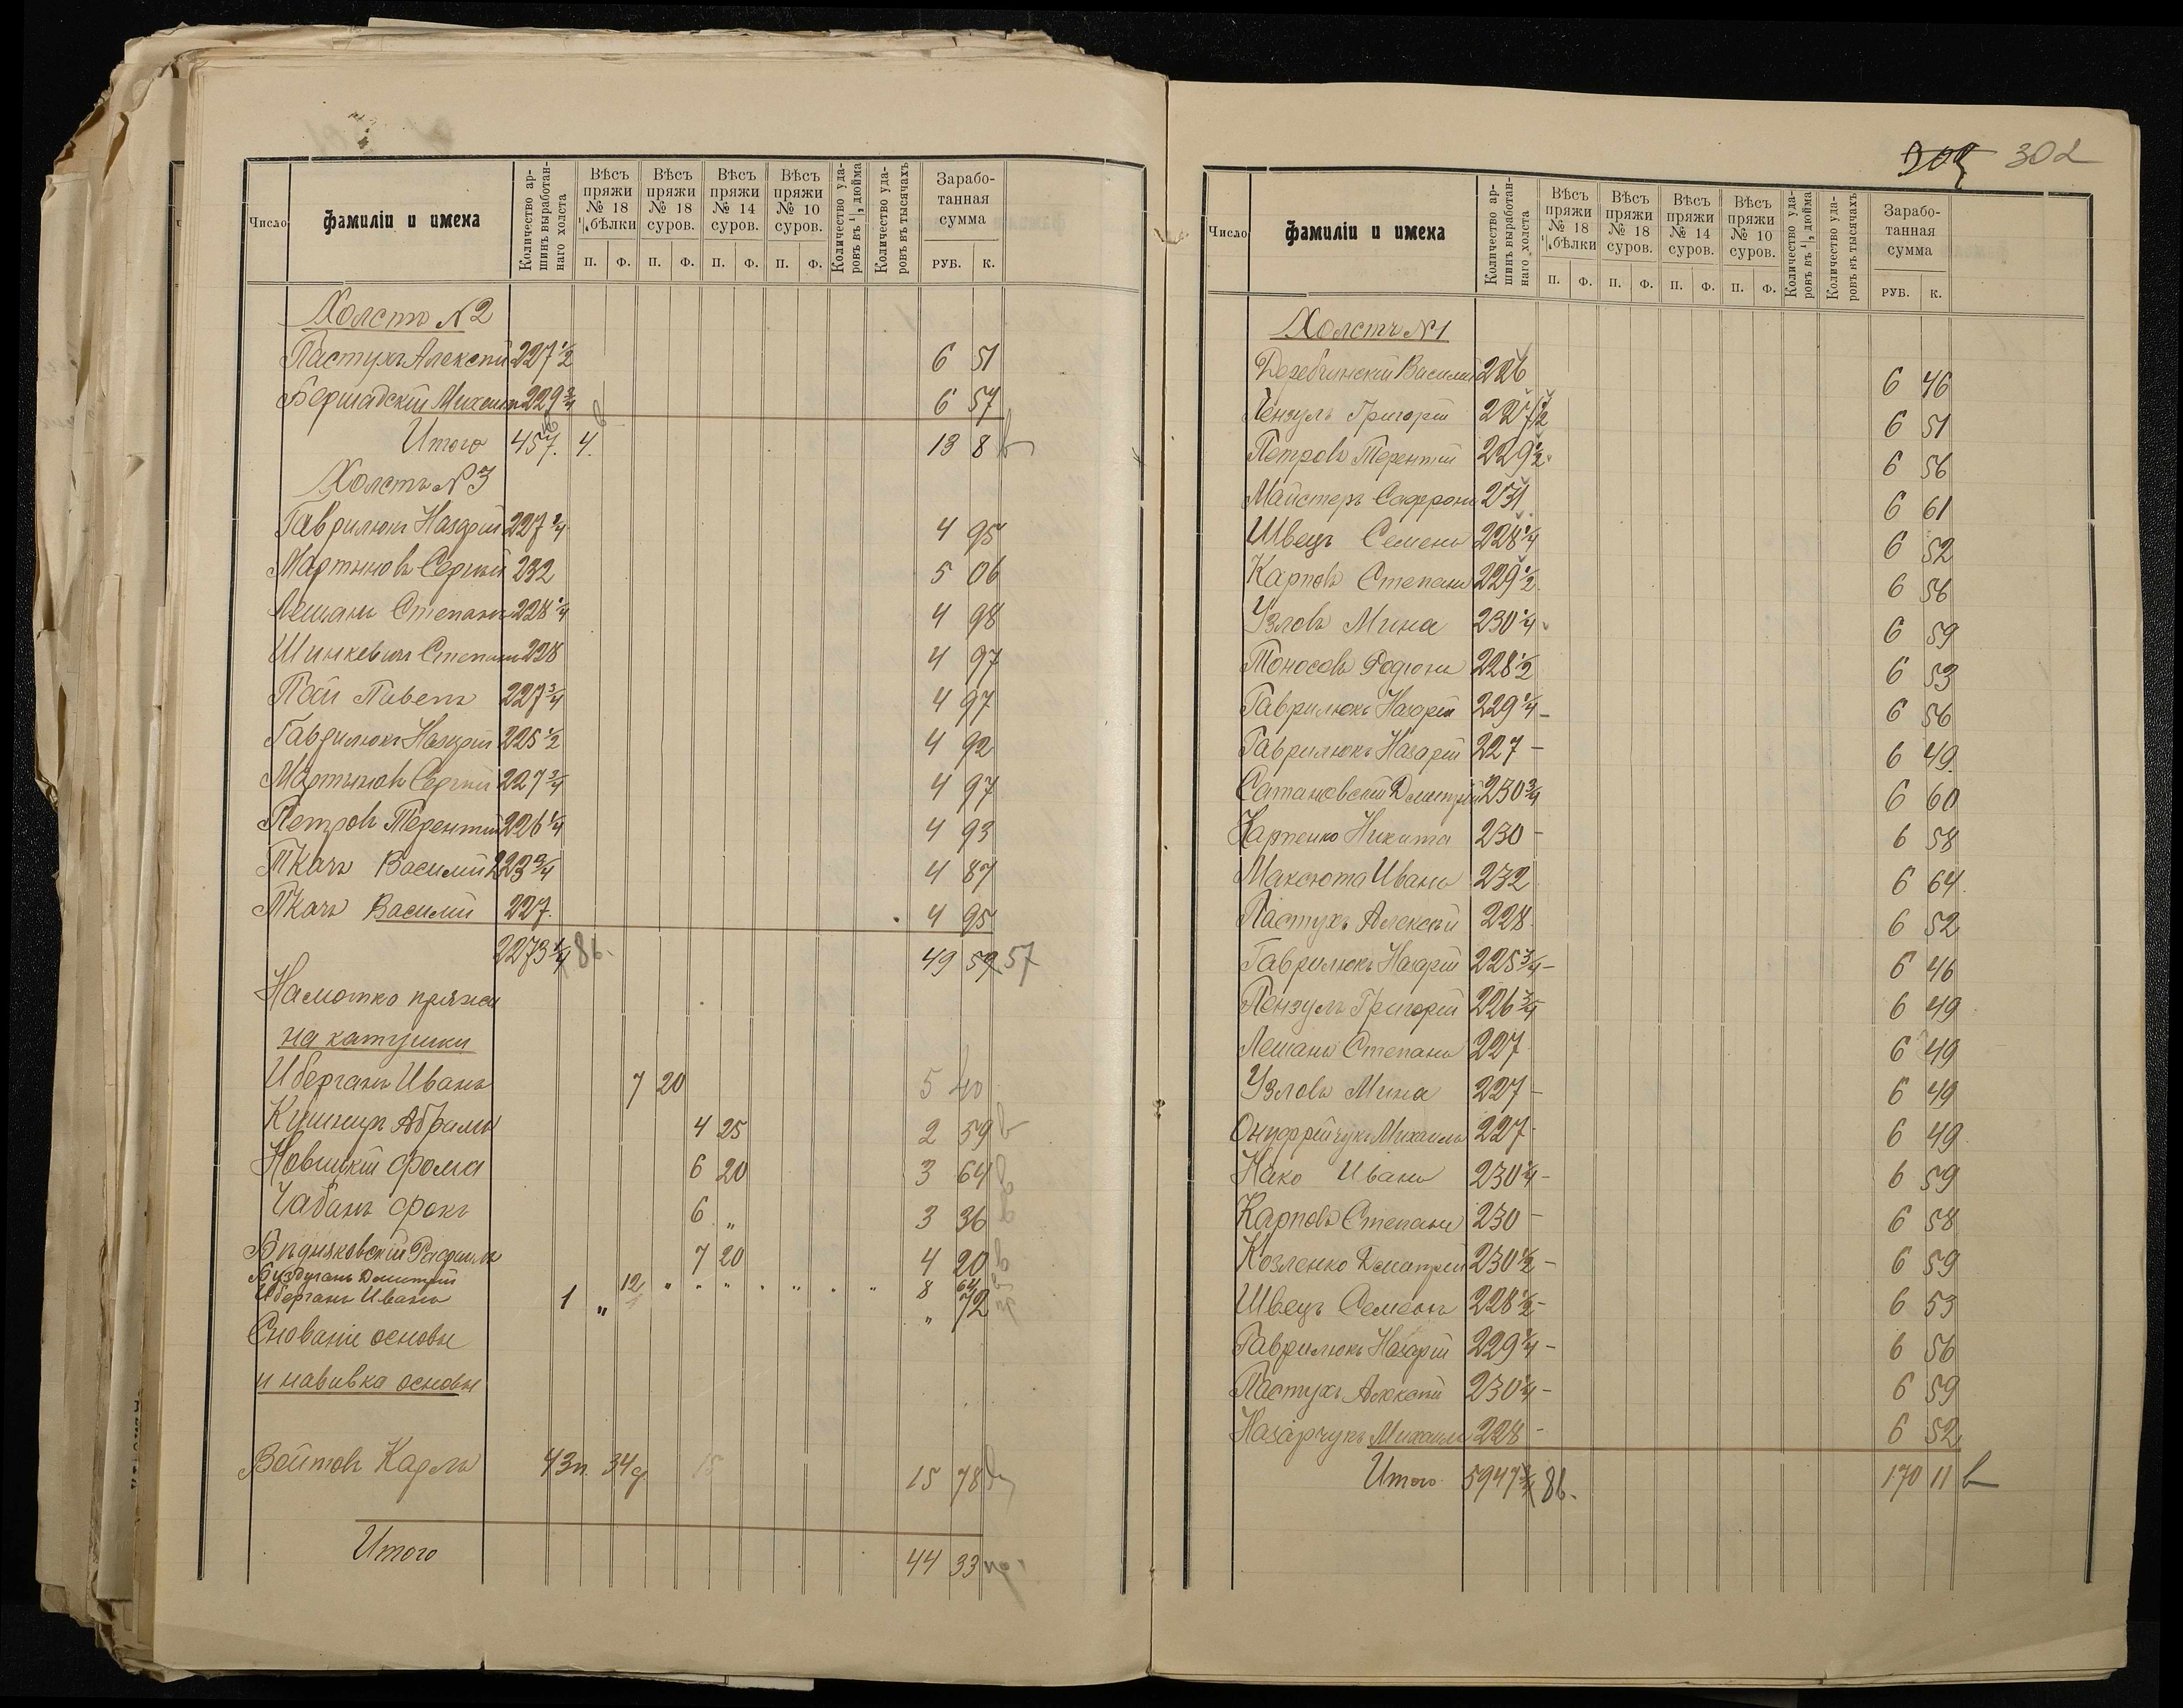 Число
Фамиліи и имена
Количество ар-
шинъ выработан-
наго холста
Вѣсъ
пряжи
№ 18
¼ бѣлки
Вѣсъ
пряжи
№ 18
суров.
Вѣсъ
пряжи
№ 14
суров.
Вѣсъ
пряжи
№ 10
суров.
Количество уда-
ровъ въ ¼ дюйма
Количество уда-
ровъ въ тысячахъ
Зарабо-
танная
сумма
П. Ф. П. Ф. П. Ф. П. Ф. РУБ. К.
Холстъ № 2
Пастухъ Алексѣй 227 ½ 6 51
Бершадскій Михаилъ 229 ¾ 6 57
Итого 457. 4. 13 8
Холстъ № 3
Гаврилюкъ Назарій 227 ¼ 4 95
Мартыновъ Сергѣй 232 5 06
Лешанъ Степанъ 228 ¼ 4 98
Шинкевичъ Степанъ 228 4 97
Пай Павелъ 227 ¾ 4 97
Гаврилюкъ Назарій 225 ½ 4 92
Мартыновъ Сергѣй 227 ¾ 4 97
Петровъ Терентій 226 ¼ 4 93
Ткачъ Василій 223 ¾ 4 87
Ткачъ Василій 227. 4 95
2273 ¼ 86. 49 59 57
Намотка пряжи
на катушки
Иберганъ Иванъ 7 20 5 40
Кушниръ Абрамъ 4 25 2 59
Новицкій Фома 6 20 3 64
Чабанъ Фокъ 6 „ 3 36
Бѣдняковскій Рафаилъ 7 20 4 20
Буздуганъ Дмитрій 12 „ „ „ „ „ „ „ 8 64
Иберганъ Иванъ 1 „ „ 72
Снованіе основы
и навивка основы
Войтовъ Карлъ 43п. 34ф. 15 15 78
Итого 44 33
302
Число
Фамиліи и имена
Количество ар-
шинъ выработан-
наго холста
Вѣсъ
пряжи
№ 18
¼ бѣлки
Вѣсъ
пряжи
№ 18
суров.
Вѣсъ
пряжи
№ 14
суров.
Вѣсъ
пряжи
№ 10
суров.
Количество уда-
ровъ въ ¼ дюйма
Количество уда-
ровъ въ тысячахъ
Зарабо-
танная
сумма
П. Ф. П. Ф. П. Ф. П. Ф. РУБ. К.
Холстъ № 1
Деребчинскій Василій 226 6 46
Пензулъ Григорій 227 ½ 6 51
Петровъ Терентій 229 ½ 6 56
Майстеръ Софронъ 231 6 61
Швецъ Семенъ 228 ¼ 6 52
Карповъ Степанъ 229 ½ 6 56
Узловъ Мина 230 ¼ 6 59
Тоносовъ Родіонъ 228 ½ 6 53
Гаврилюкъ Назарій 229 ¼ – 6 56
Гаврилюкъ Назарій 227 – 6 49
Сатановскій Дмитрій 230 ¾ 6 60
Карпенко Никита 230 – 6 58
Максюта Иванъ 232 6 64
Пастухъ Алексѣй 228 6 52
Гаврилюкъ Назарій 225 ¾ – 6 46
Пензулъ Григорій 226 ¾ 6 49
Лешанъ Степанъ 227 6 49
Узловъ Мина 227 – 6 49
Онуфрійчукъ Михаилъ 227 6 49
Нако Иванъ 230 ¼ – 6 59
Карповъ Степанъ 230 – 6 58
Козленко Дмитрій 230 ½ – 6 59
Швецъ Семенъ 228 ½ – 6 53
Гаврилюкъ Назарій 229 ¼ – 6 56
Пастухъ Алексѣй 230 ¼ – 6 59
Назарчукъ Михаилъ 228 – 6 52
Итого 5947 ¾ 86. 170 11